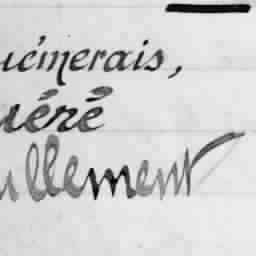 uémerais,
uéré
ullement